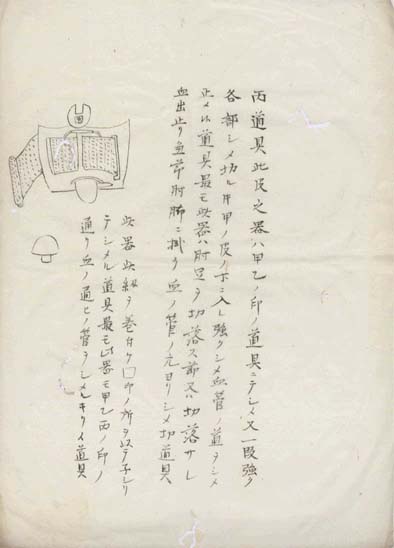 丙道具此皮之器ハ甲乙ノ印ノ道具ニテシメ又一段強ク
各部シメ切ル片甲ノ皮ノ下ニ入レ強クシメ血管ノ道ヲシメ
止メル道具最モ此器ハ肘足ヲ切落ス節又ハ切落サレ
血出止リ兼節肘肺ニ掛ケ血ノ管ノ元ヨリシメ切道具
此器此紐ヲ巻付ケ口印ノ所ヲ以テ子シリ
テシメル道具最モ此器モ甲乙丙ノ印ノ
通リ血ノ通ヒノ管ヲシメルキクイ道具